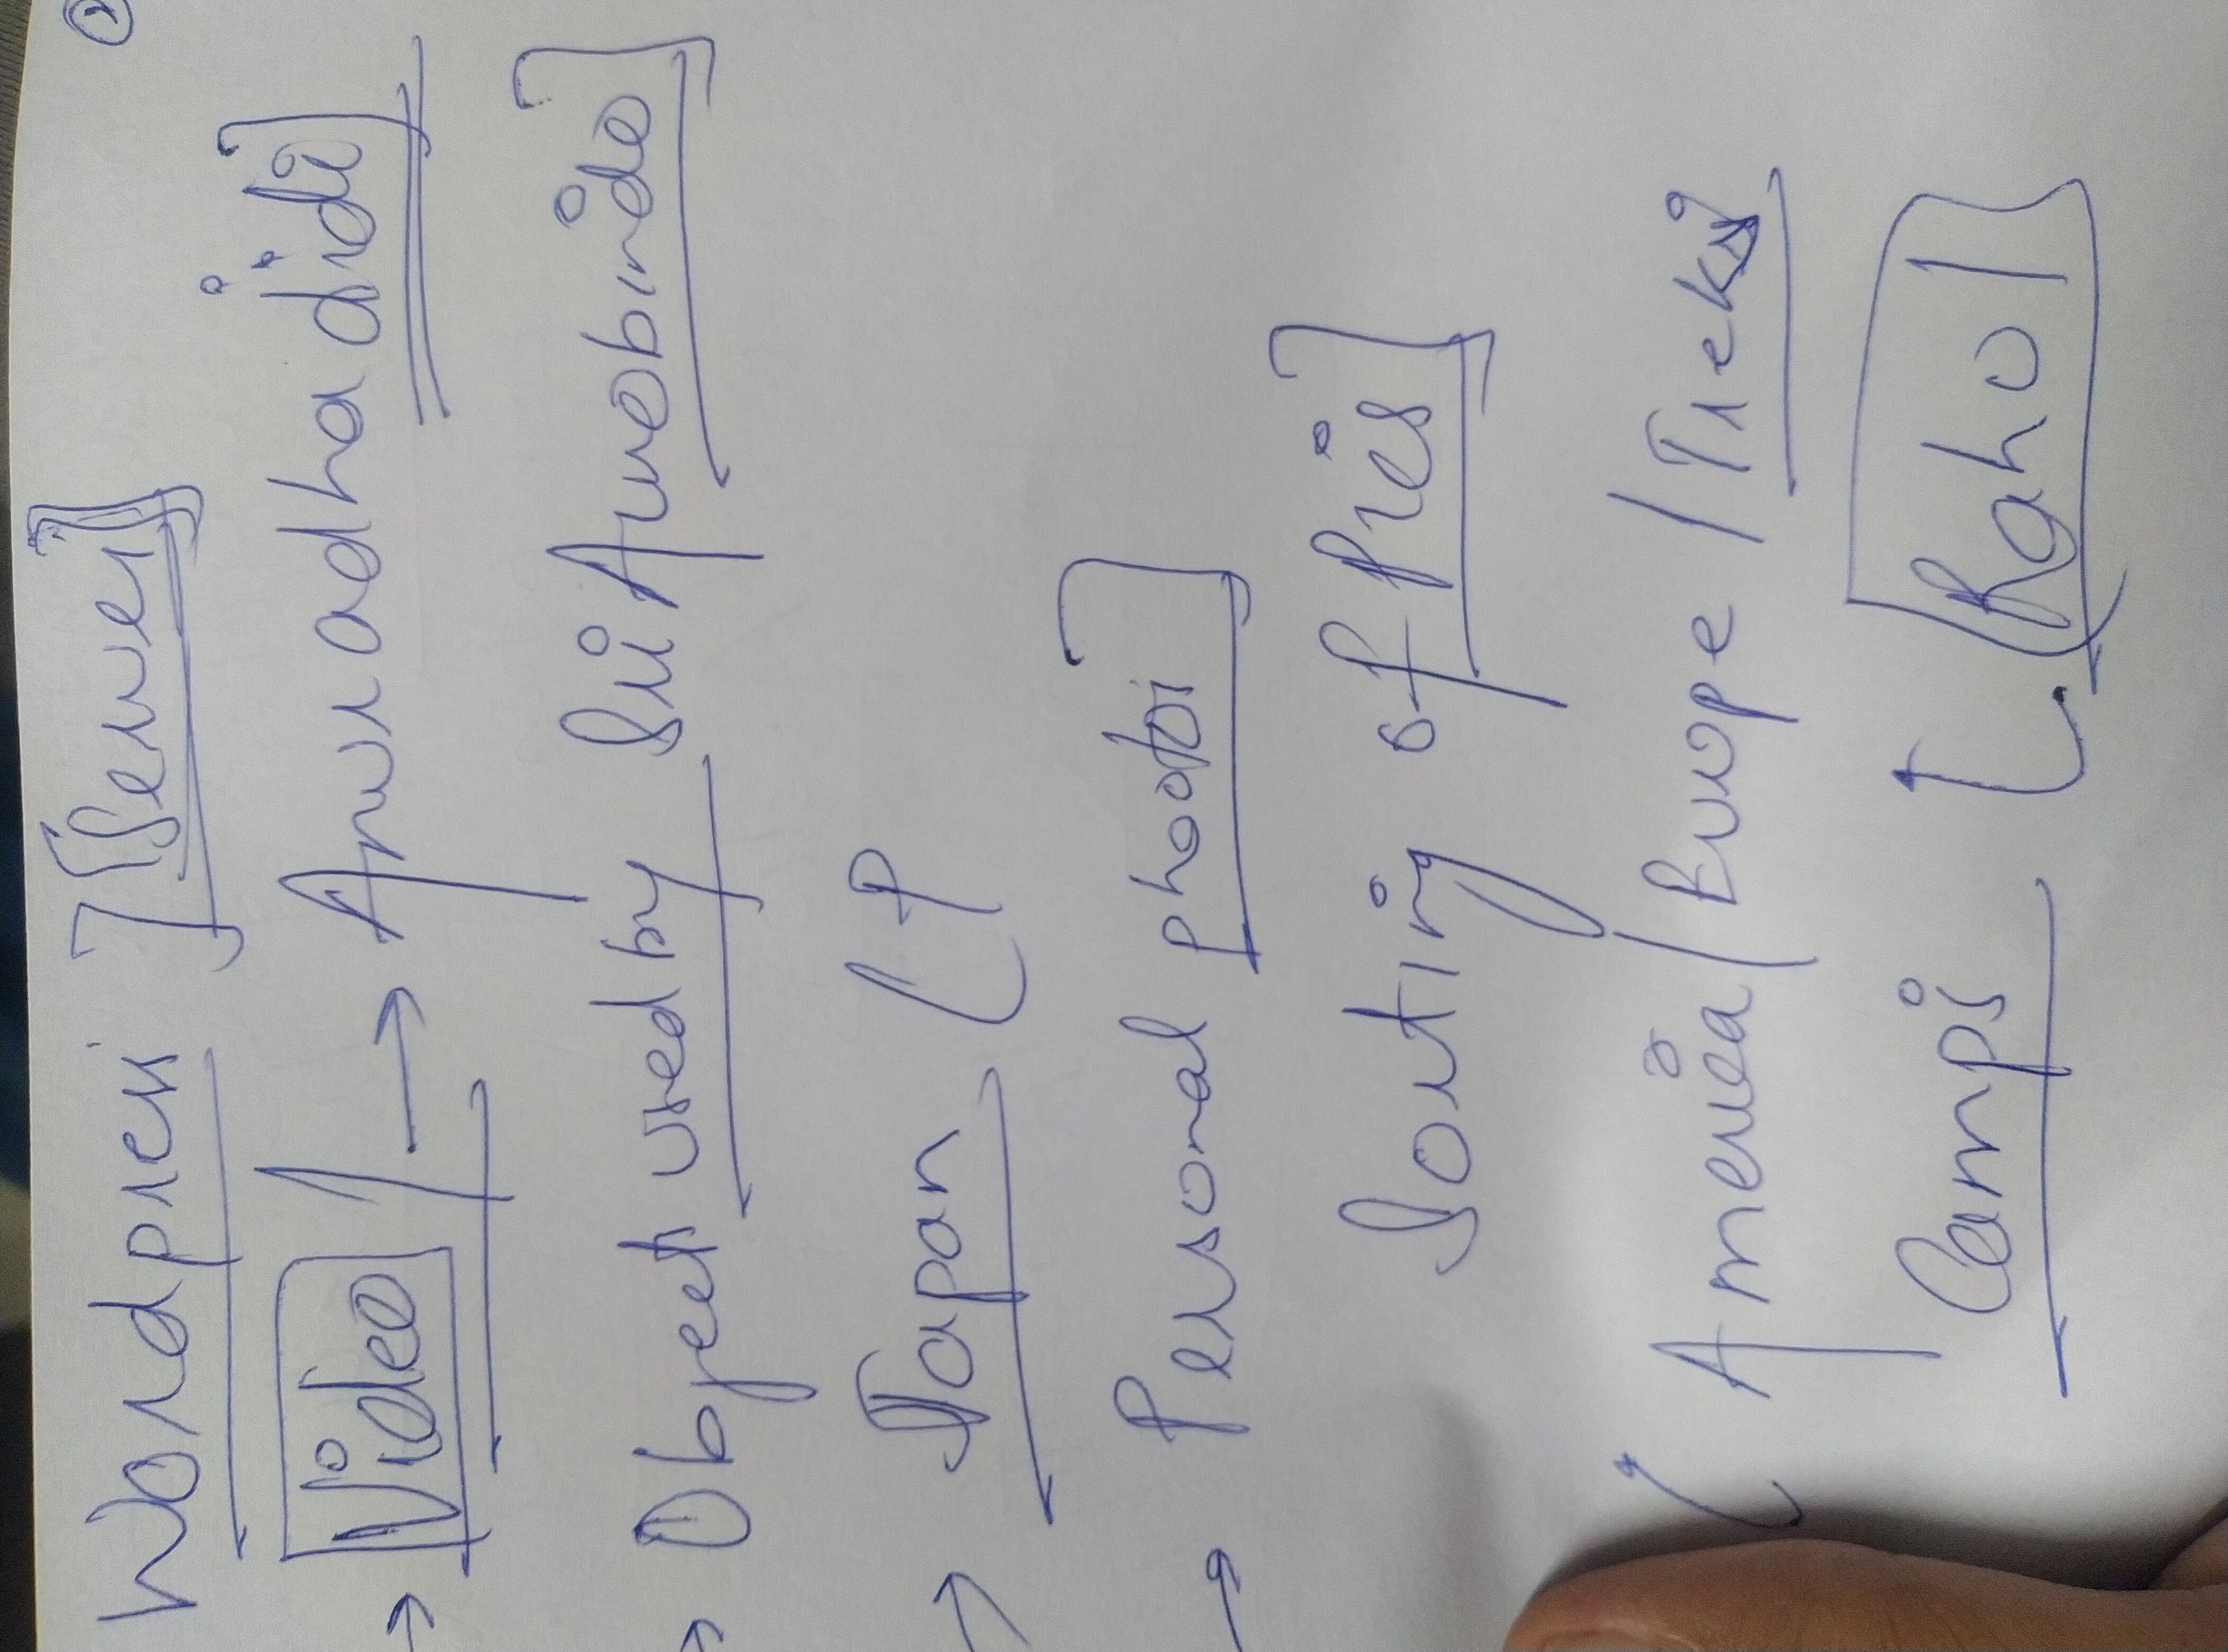 Wordpress [Server]
→ Video / → Anuradha didi]
→ Object used by Sri Aurobindo]
→ Japan (P
→ Personal photos]
Sorting of Pics]
( America / Europe / Treks
Camps ( Rahol